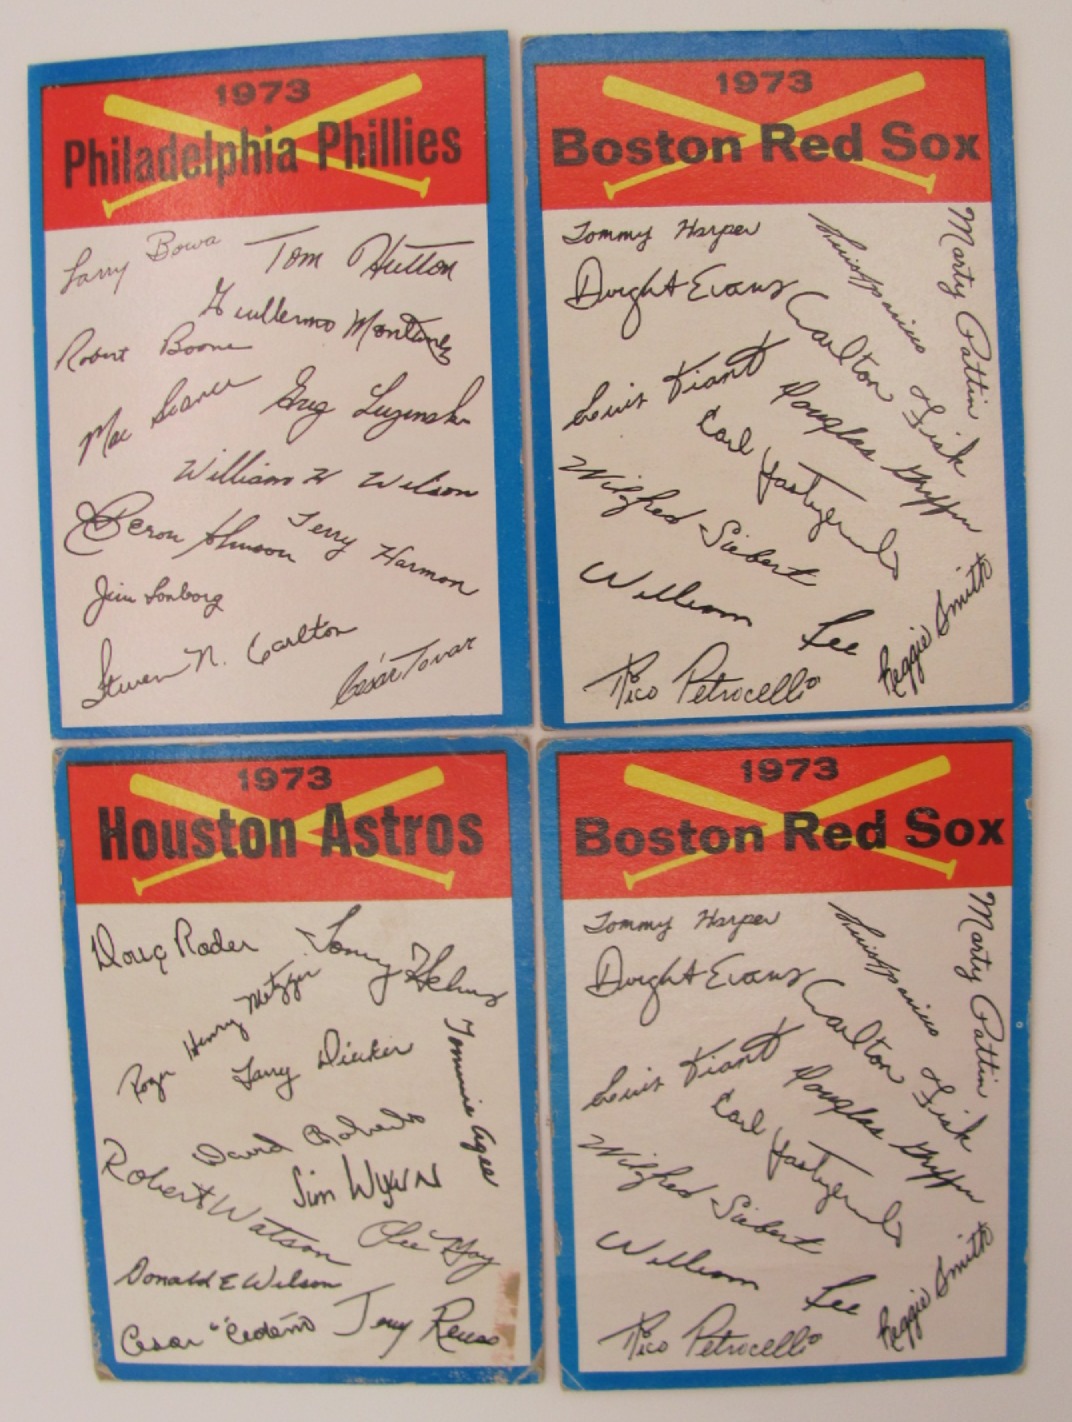 1973
Philadelphia Phillies
Larry Bowa
Tom Hutton
Guillermo Montanez
Robert Boone
Mac Scarce
Greg Luzinski
William H Wilson
Deron Johnson
Terry Harmon
Jim Lonborg
Steven N. Carlton
César Tovar
1973
Boston Red Sox
Tommy Harper
Luis Aparicio
Marty Pattin
Dwight Evans
Carlton Fisk
Luis Tiant
Douglas Griffin
Carl Yastrzemski
Wilfred Siebert
William Lee
Reggie Smith
Rico Petrocelli
1973
Houston Astros
Doug Rader
Tommy Helms
Roger Henry Metzger
Larry Dierker
Tommie Agee
David Roberts
Jim Wynn
Robert Watson
Lee May
Donald E Wilson
Cesar "Cedeño
Jerry Reuss
1973
Boston Red Sox
Tommy Harper
Luis Aparicio
Marty Pattin
Dwight Evans
Carlton Fisk
Luis Tiant
Douglas Griffin
Carl Yastrzemski
Wilfred Siebert
William Lee
Reggie Smith
Rico Petrocelli